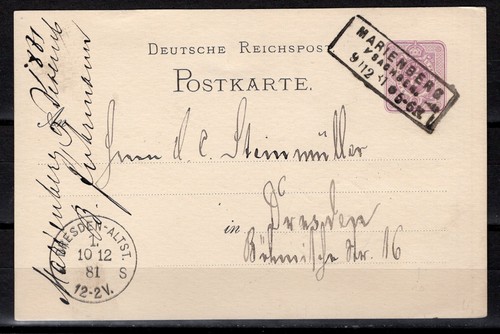 DEUTSCHE REICHSPOST
POSTKARTE.
MARIENBERG
SACHSEN
9 12
5-6N
Herrn d. C. Steinmüller
in Dresden
Böhmische Str. 16
Marienberg 1881
DRESDEN-ALTST.
1.
10 12
81 S
12-2V.